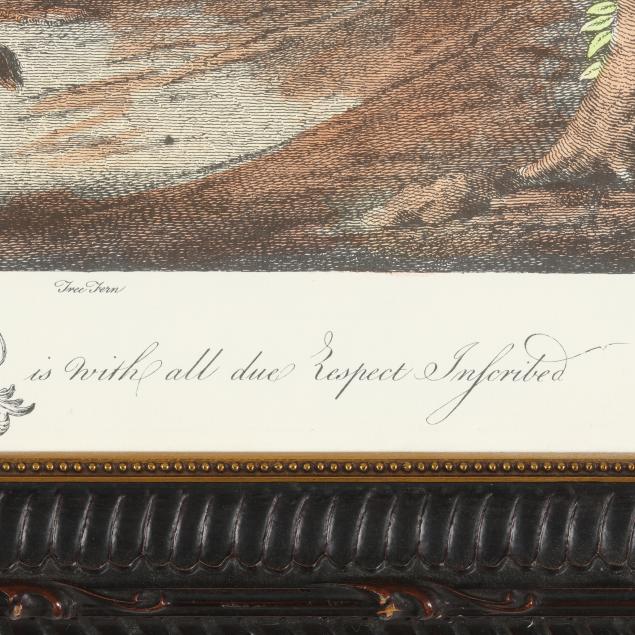 Tree Fern
is with all due Respect Inſcribed